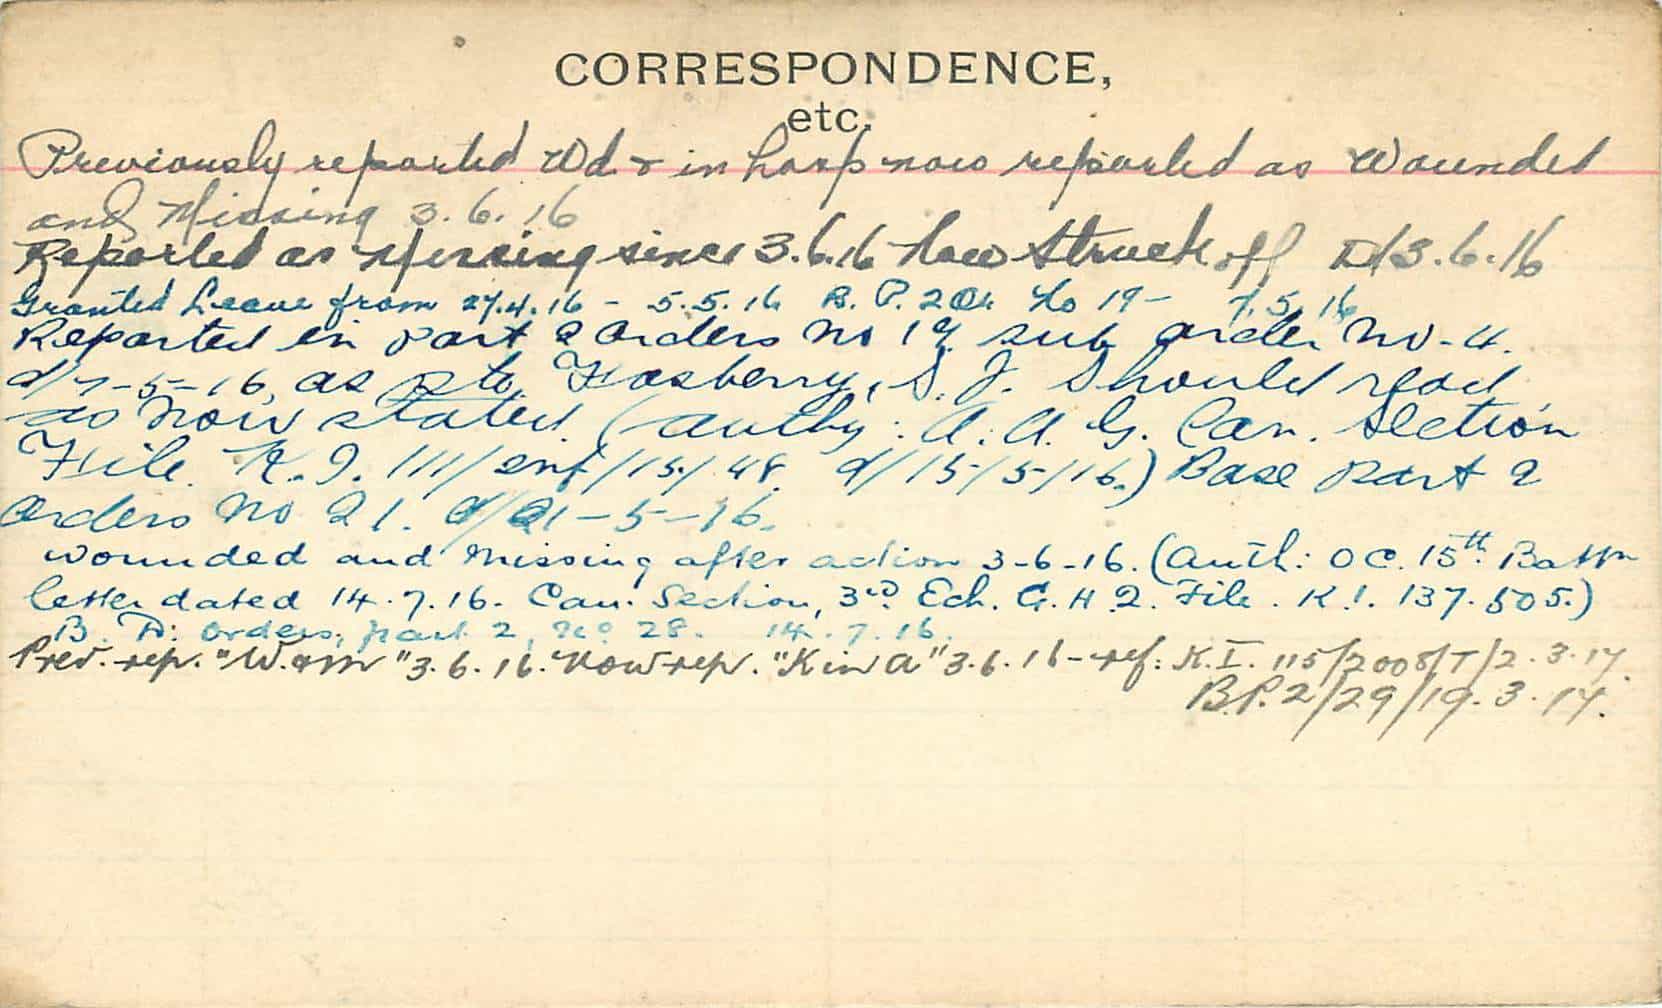 CORRESPONDENCE,
etc.
Previously reported Wd. & in hosp now reported as Wounded
and Missing 3.6.16
Reported as Missing since 3.6.16 Now Struck off D/3.6.16
Granted Leave from 27.4.16 - 5.5.16 B. P. 2 No 19 - 7.5.16
Reported in part 2 orders No 19. sub order No-4.
d/7-5-16, as pte, Fosberry, S. J. Should read
as now stated. (Authy: A. A. G. Can. Section
File. K.I. 111/enf/15/48. d/15/5/16.) Base Part 2
Orders No 21. d/21-5-16.
wounded and missing after action 3-6-16. (Auth: O C. 15th Battn
letter dated 14.7.16. Can. Section, 3rd Ech. G. H. Q. File. K.I. 137.505.)
B. D. orders, part 2, No 28. 14.7.16.
Prev. rep. "W. & m" 3.6.16. Now rep. "K in A" 3.6.16 - ref: K.I. 115/2008/T/2.3.17.
B.P.2/29/19.3.17.